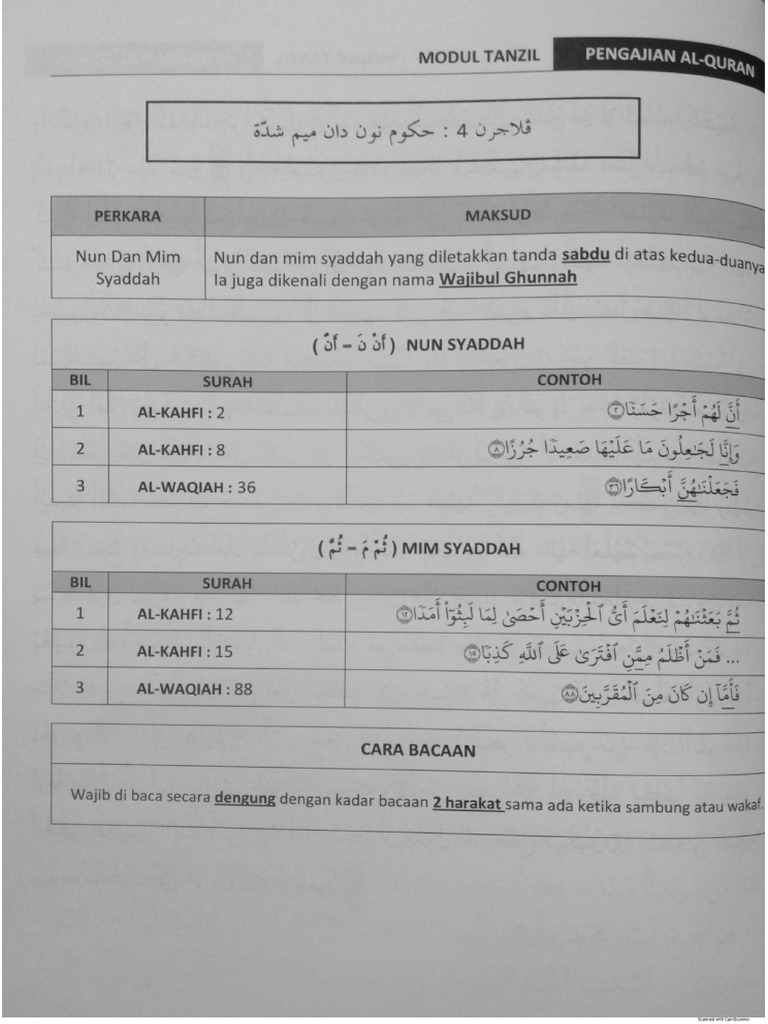 MODUL TANZIL PENGAJIAN AL-QURAN
ڤلاجرن 4 : حكوم نون دان ميم شدّة
PERKARA MAKSUD
Nun Dan Mim Syaddah Nun dan mim syaddah yang diletakkan tanda sabdu di atas kedua-duanya
Ia juga dikenali dengan nama Wajibul Ghunnah
( أَنْ نَ – أَنَّ ) NUN SYADDAH
BIL SURAH CONTOH
1 AL-KAHFI : 2 أَنَّ لَهُمْ أَجْرًا حَسَنًا ٢
2 AL-KAHFI : 8 وَإِنَّا لَجَٰعِلُونَ مَا عَلَيْهَا صَعِيدًا جُرُزًا ٨
3 AL-WAQIAH : 36 فَجَعَلْنَٰهُنَّ أَبْكَارًا ٣٦
( ثُمْ مَ – ثُمَّ ) MIM SYADDAH
BIL SURAH CONTOH
1 AL-KAHFI : 12 ثُمَّ بَعَثْنَٰهُمْ لِنَعْلَمَ أَىُّ ٱلْحِزْبَيْنِ أَحْصَىٰ لِمَا لَبِثُوٓا۟ أَمَدًا ١٢
2 AL-KAHFI : 15 ... فَمَنْ أَظْلَمُ مِمَّنِ ٱفْتَرَىٰ عَلَى ٱللَّهِ كَذِبًا ١٥
3 AL-WAQIAH : 88 فَأَمَّآ إِن كَانَ مِنَ ٱلْمُقَرَّبِينَ ٨٨
CARA BACAAN
Wajib di baca secara dengung dengan kadar bacaan 2 harakat sama ada ketika sambung atau wakaf.
Scanned with CamScanner